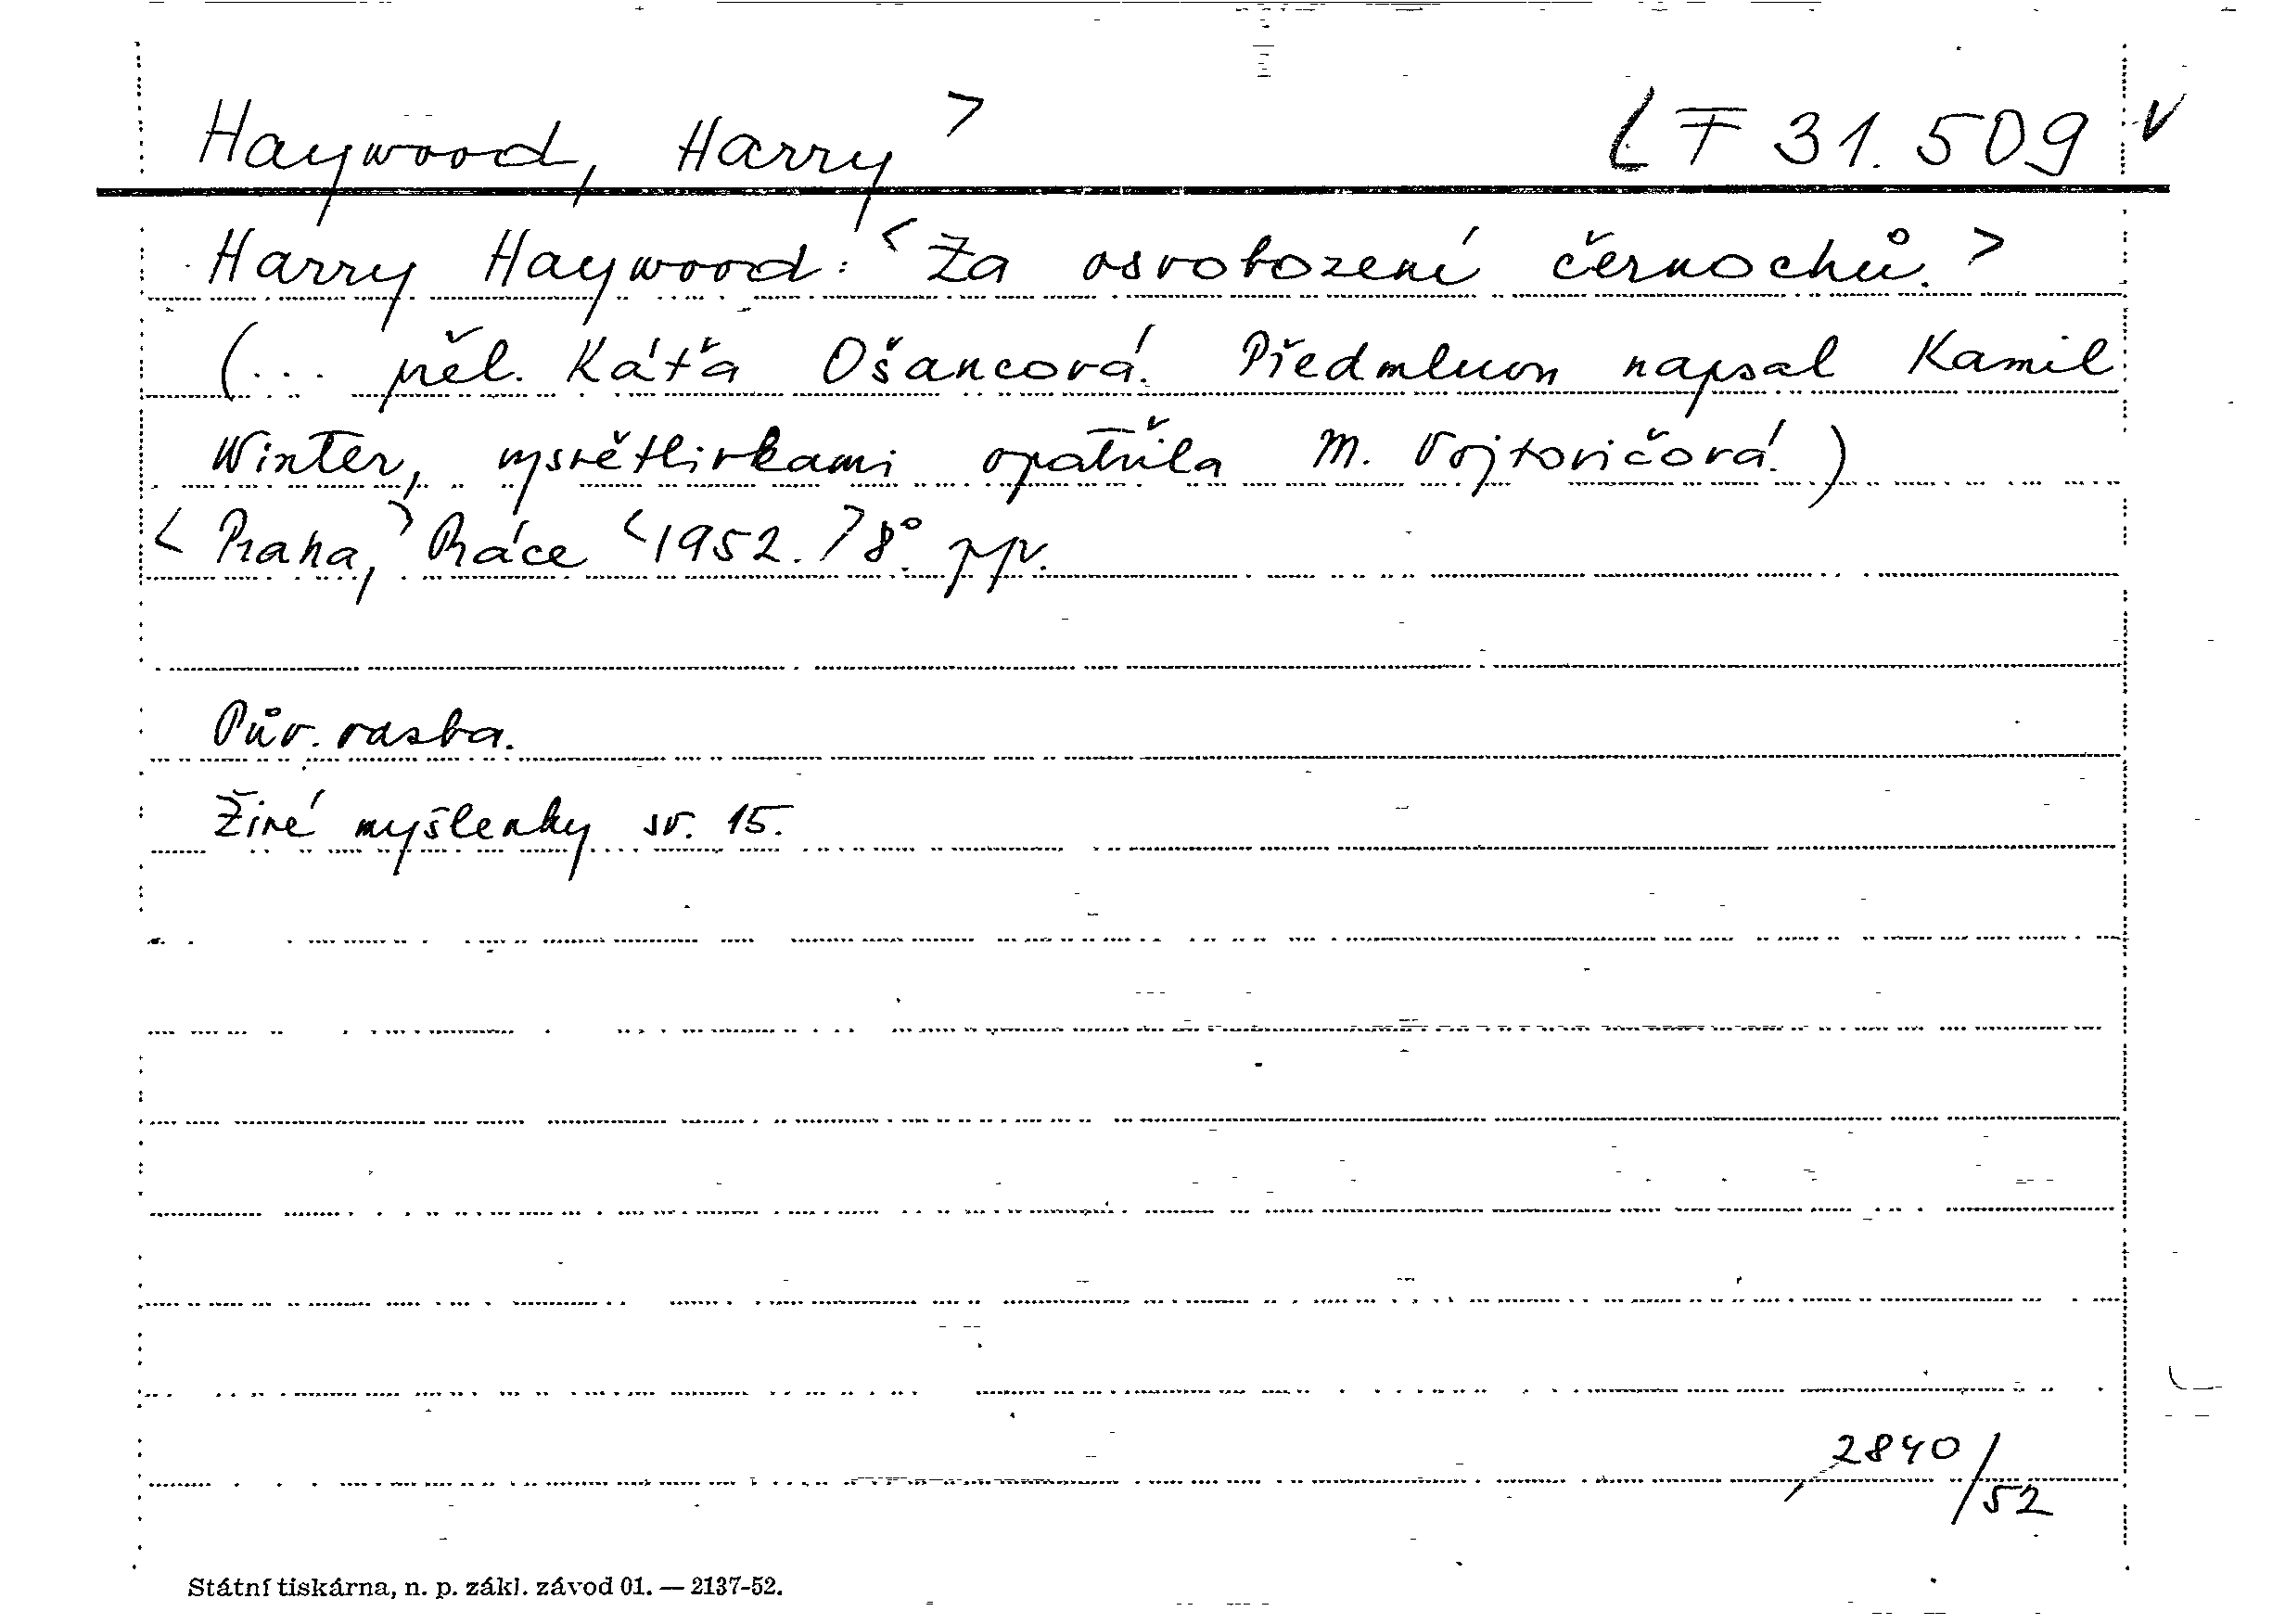 Haywood, Harry > LT 31.509 v
Harry Haywood: < Za osvobození černochů. >
(... přel. Káťa Ošancová. Předmluvu napsal Kamil
Winter, vysvětlivkami opatřila M. Vojtovičová.)
< Praha, > Práce < 1952. > 8°.
Pův. vazba.
Živé myšlenky sv. 15.
2840/52
Státní tiskárna, n. p. zákl. závod 01. — 2137-52.